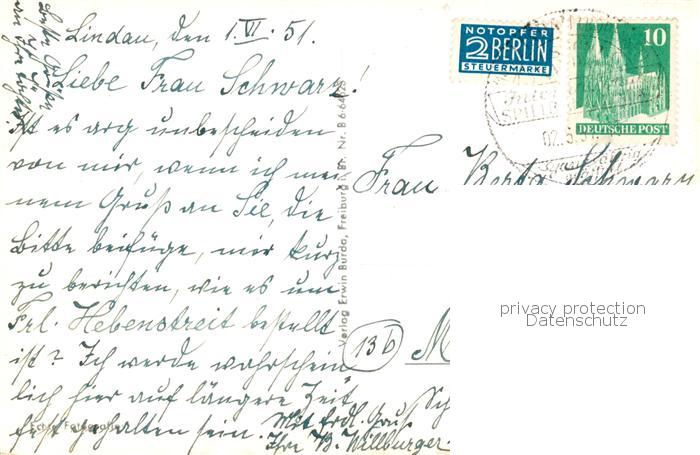 Lindau, den 1.VI.51.
Liebe Frau Schwarz!
ist es arg unbescheiden
von mir, wenn ich mei
nem Gruß an Sie, die
Bitte beifüge, mir kurz
zu berichten, wie es um
Frl. Hebenstreit bestellt
ist? Ich werde wahrschein
lich hier auf längere Zeit
festgehalten sein. Mit frdl. Gruß
Ihre B. Willburger.
Echte Fotografie
Verlag Erwin Burda, Freiburg i. Br. Nr. B 6-
NOTOPFER
2 BERLIN
STEUERMARKE
10
DEUTSCHE POST
02.
Frau Berta Schwarz
13b M
Sch
privacy protection
Datenschutz